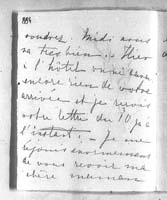 194
voudrez. Midi vous
va très bien. Hier
à l'hôtel on ne sav.
encore rien de votre
arrivée et je reçois
votre lettre du 10 à
l'instant. — Je me
réjouis énormément
de vous revoir ma
chère